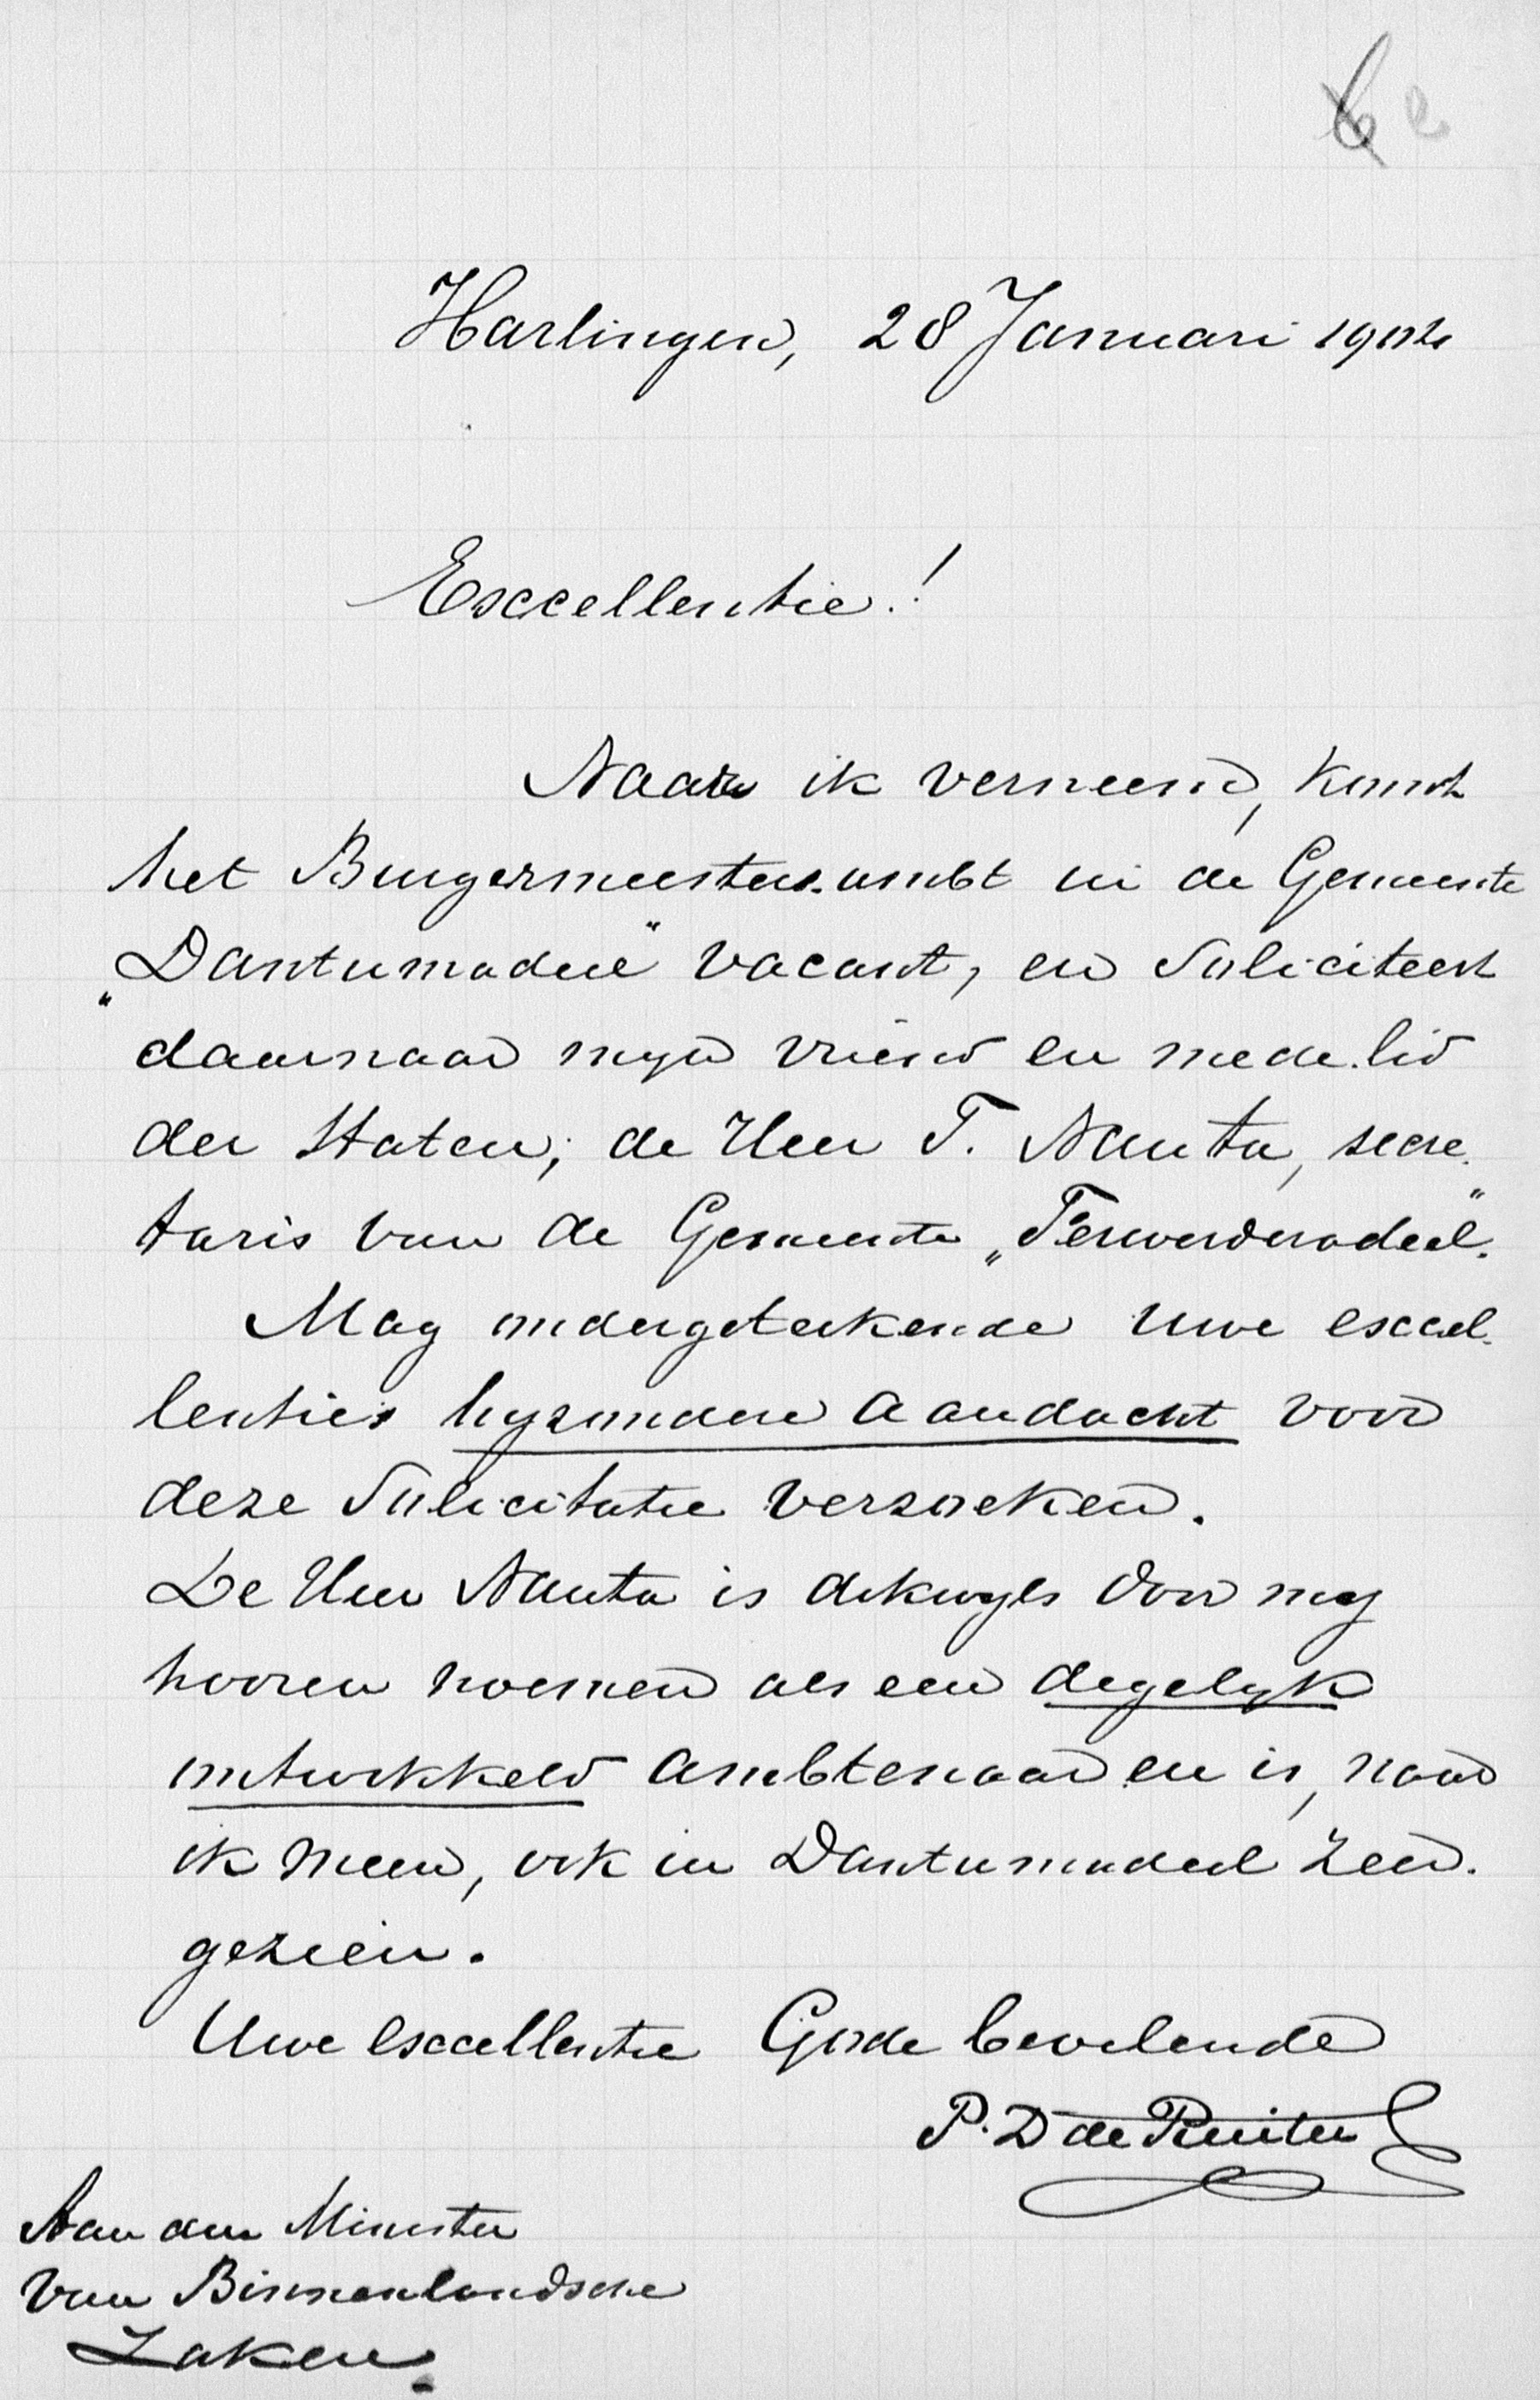 Harlingen, 28 Januari 1904
Exccellentie!
Naar ik verneem, komt
het Burgermeesters.ambt in de Gemeente
„Dantumadeel" vacant, en Soliciteert
daarnaar myn vriend en mede.lid
der Staten; de Heer T. Nauta, secre.
taris van de Gemeente „Ferwerderadeel".
Mag ondergetekende Uwe exccel.
lenties byzondere aandacht voor
deze Solicitatie verzoeken.
De Heer Nauta is dikwyls door my
hooren noemen als een degelyk
ontwikkeld ambtenaar en is, naar
ik meen, ook in Dantumadeel zeer.
gezien.
Uwe exccellentie Gode bevelende
P. D de Ruiter
Aan den Minister
van Binnenlandsche
Zaken.